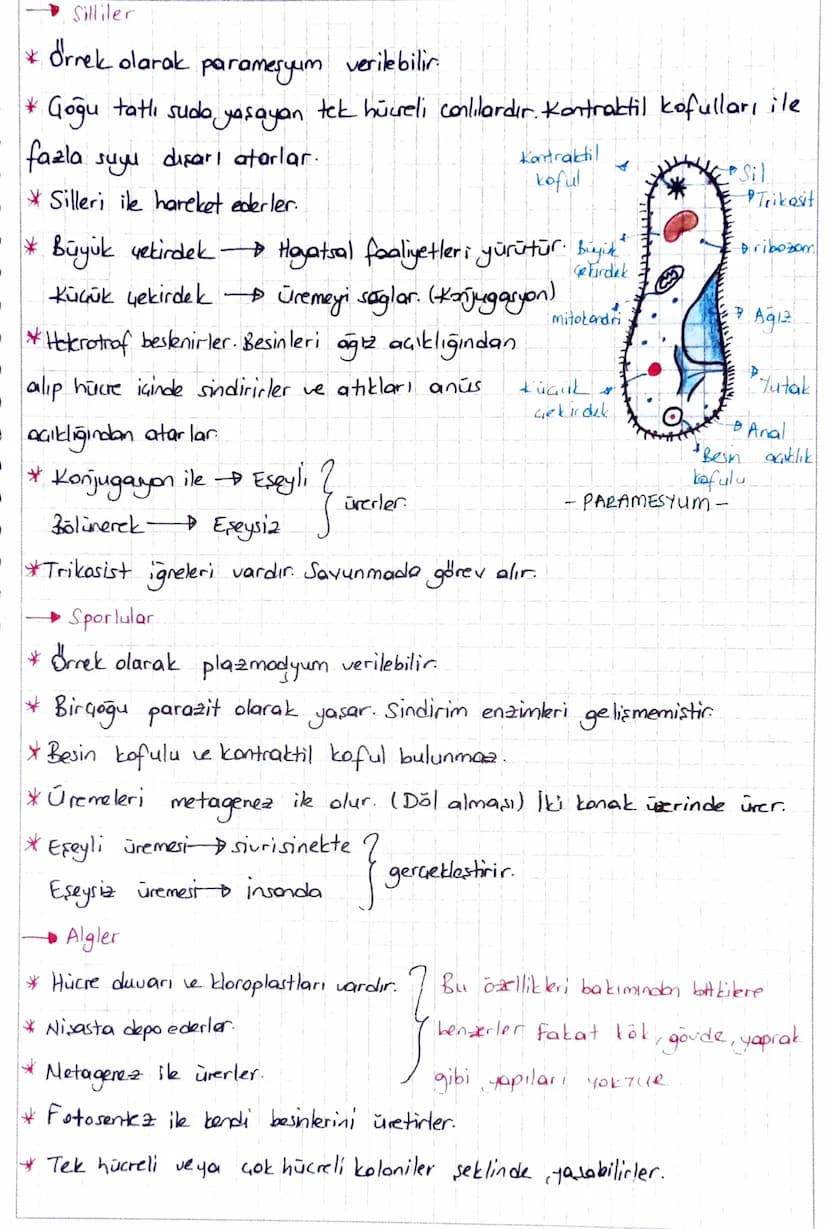 → Silliler
* Örnek olarak paramesyum verilebilir.
* Çoğu tatlı suda yaşayan tek hücreli canlılardır. Kontraktil kofulları ile
fazla suyu dışarı atarlar.
* Silleri ile hareket ederler.
* Büyük çekirdek → Hayatsal faaliyetleri yürütür.
Küçük çekirdek → Üremeyi sağlar. (Konjugasyon)
* Heterotrof beslenirler. Besinleri ağız açıklığından
alıp hücre içinde sindirirler ve atıkları anüs
açıklığından atarlar.
* Konjugasyon ile → Eşeyli
Bölünerek → Eşeysiz
ürerler.
Kontraktil
koful
Sil
Trikosit
Büyük
çekirdek
ribozom
mitokondri
Ağız
Küçük
çekirdek
Yutak
Anal
açıklık
Besin
kofulu
- PARAMESYUM -
* Trikosist iğneleri vardır. Savunmada görev alır.
→ Sporlular
* Örnek olarak plazmodyum verilebilir.
* Birçoğu parazit olarak yaşar. Sindirim enzimleri gelişmemistir.
* Besin kofulu ve kontraktil koful bulunmaz.
* Üremeleri metagenez ile olur. (Döl alması) İki konak üzerinde ürer.
* Eşeyli üremesi → sivrisinekte
Eşeysiz üremesi → insanda
gerçekleştirir.
→ Algler
* Hücre duvarı ve kloroplastları vardır.
* Nişasta depo ederler.
* Metagenez ile ürerler.
Bu özellikleri bakımından bitkilere
benzerler fakat kök, gövde, yaprak
gibi yapıları yoktur
* Fotosentez ile kendi besinlerini üretirler.
* Tek hücreli veya çok hücreli koloniler şeklinde yaşabilirler.